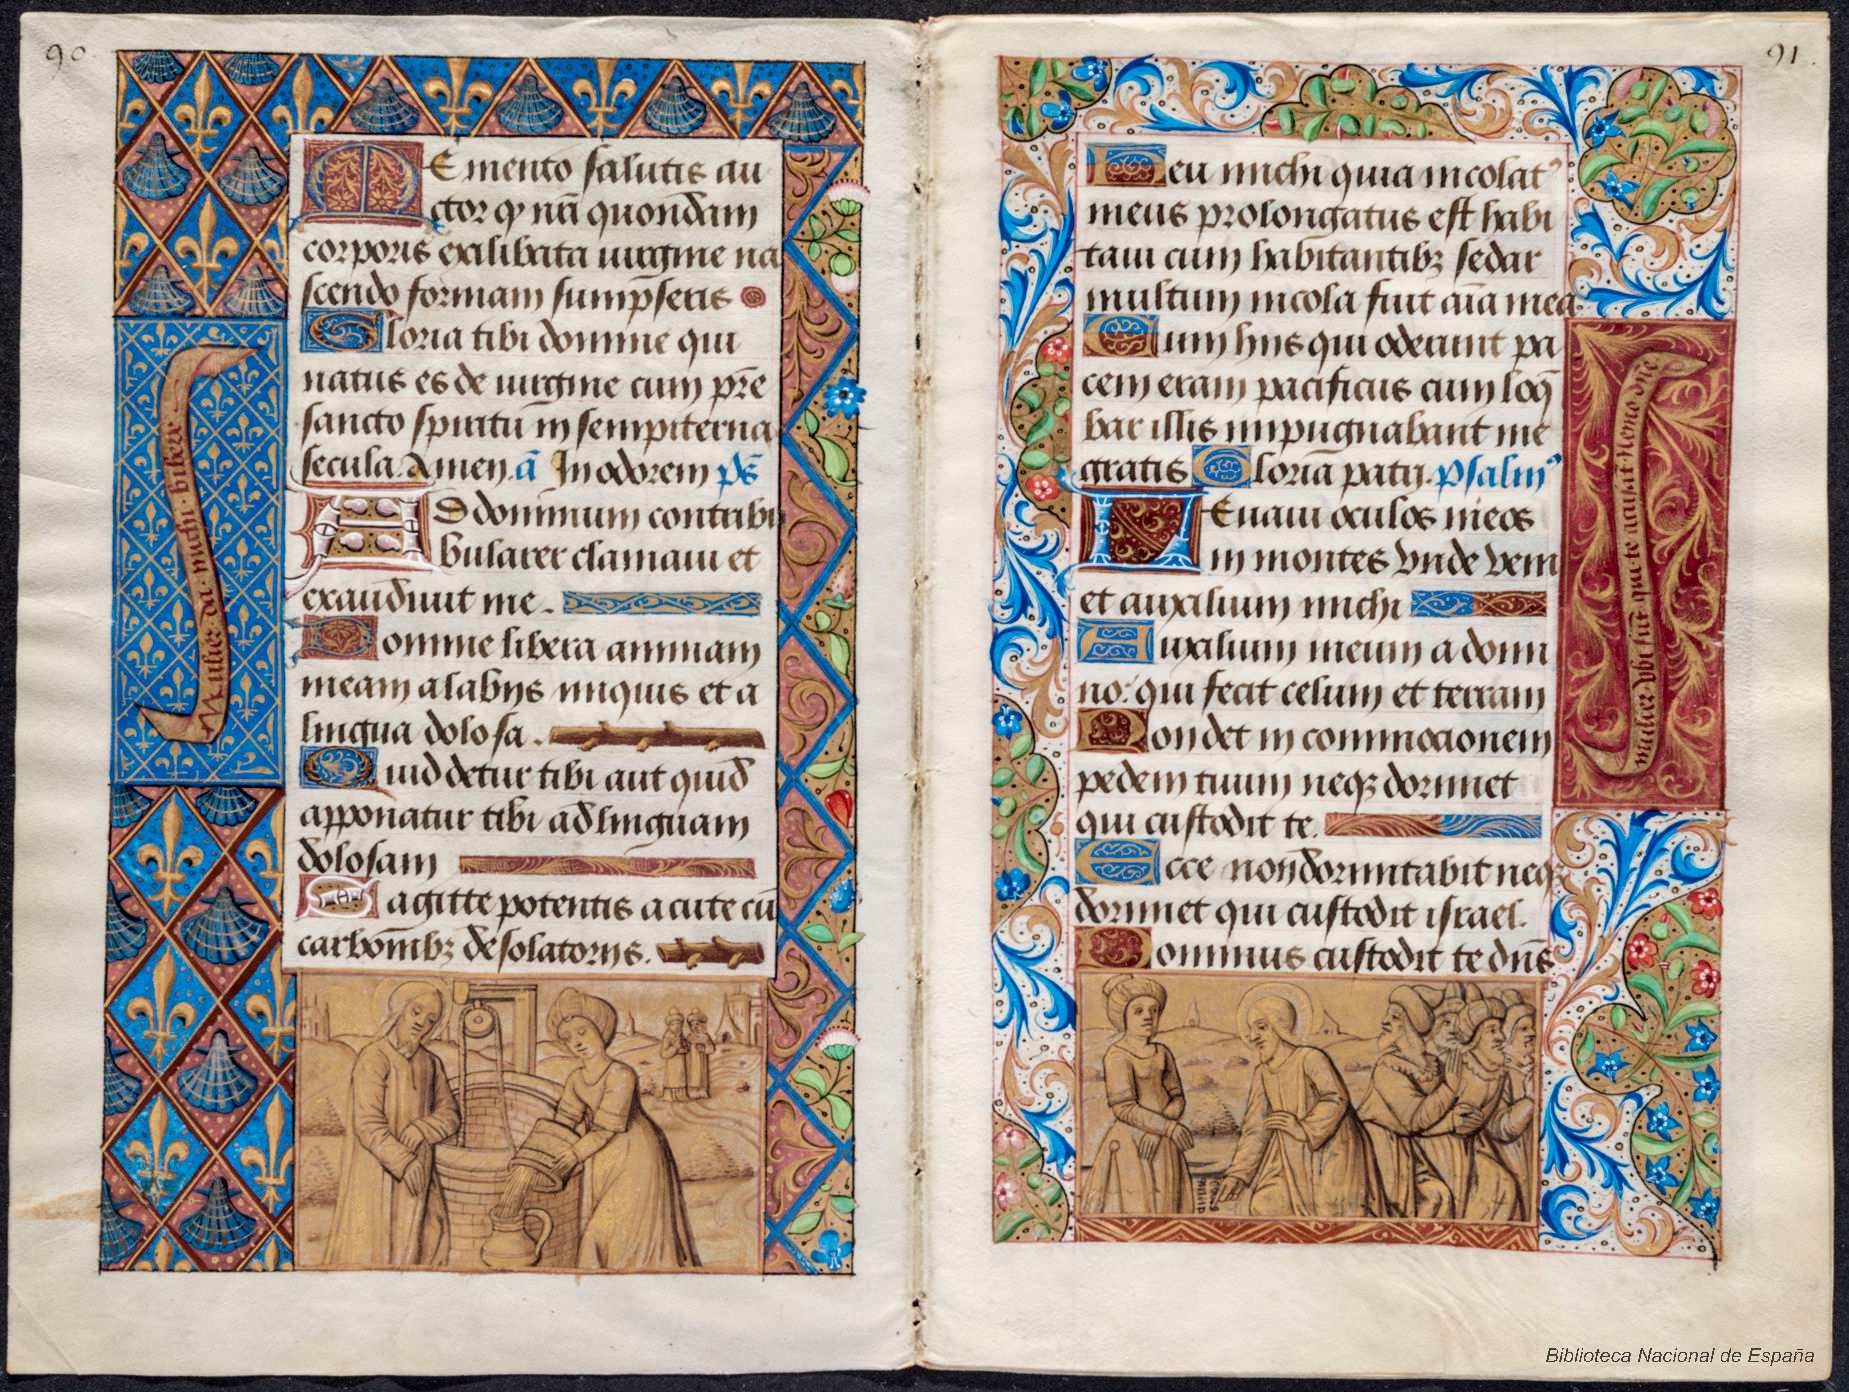 90.
MEmento salutis au
ctor qͥ nr̄i quondam
corporis exalibata uirgine na
scendo formam sumpseris
Gloria tibi domine qui
natus es de uirgine cum pr̄e
sancto spiritū in sempiterna
secula. Amen. ā In odorem pš
AD dominum contribu
bularer clamaui et
exaudiuit me.
Domine libera animam
meam a labijs iniquis et a
lingua dolosa.
Quid detur tibi aut quid
apponatur tibi ad linguam
dolosam
Sagitte potentis acute cū
carbonibꝫ desolatorijs.
Mulier da michi bibere
91.
Heu michi quia incolatꝰ
meus prolongatus est habi
taui cum habitantibꝫ sedar
multum incola fuit aīa mea
Cum hijs qui oderunt pa
cem eram pacificus cum loq̄
bar illis impugnabant me
gratis Gloria patri. psalmꝰ
LEuaui oculos meos
in montes vnde veni
et auxilium michi
Auxilium meum a domi
no: qui fecit celum et terram
Non det in commocionem
pedem tuum neqꝫ dormiet
qui custodit te.
Ecce non dormitabit neqꝫ
dormiet qui custodit israel.
Dominus custodit te dn̄s
mulier vbi sūt qui te accusāt nemo dn̄e
Biblioteca Nacional de España